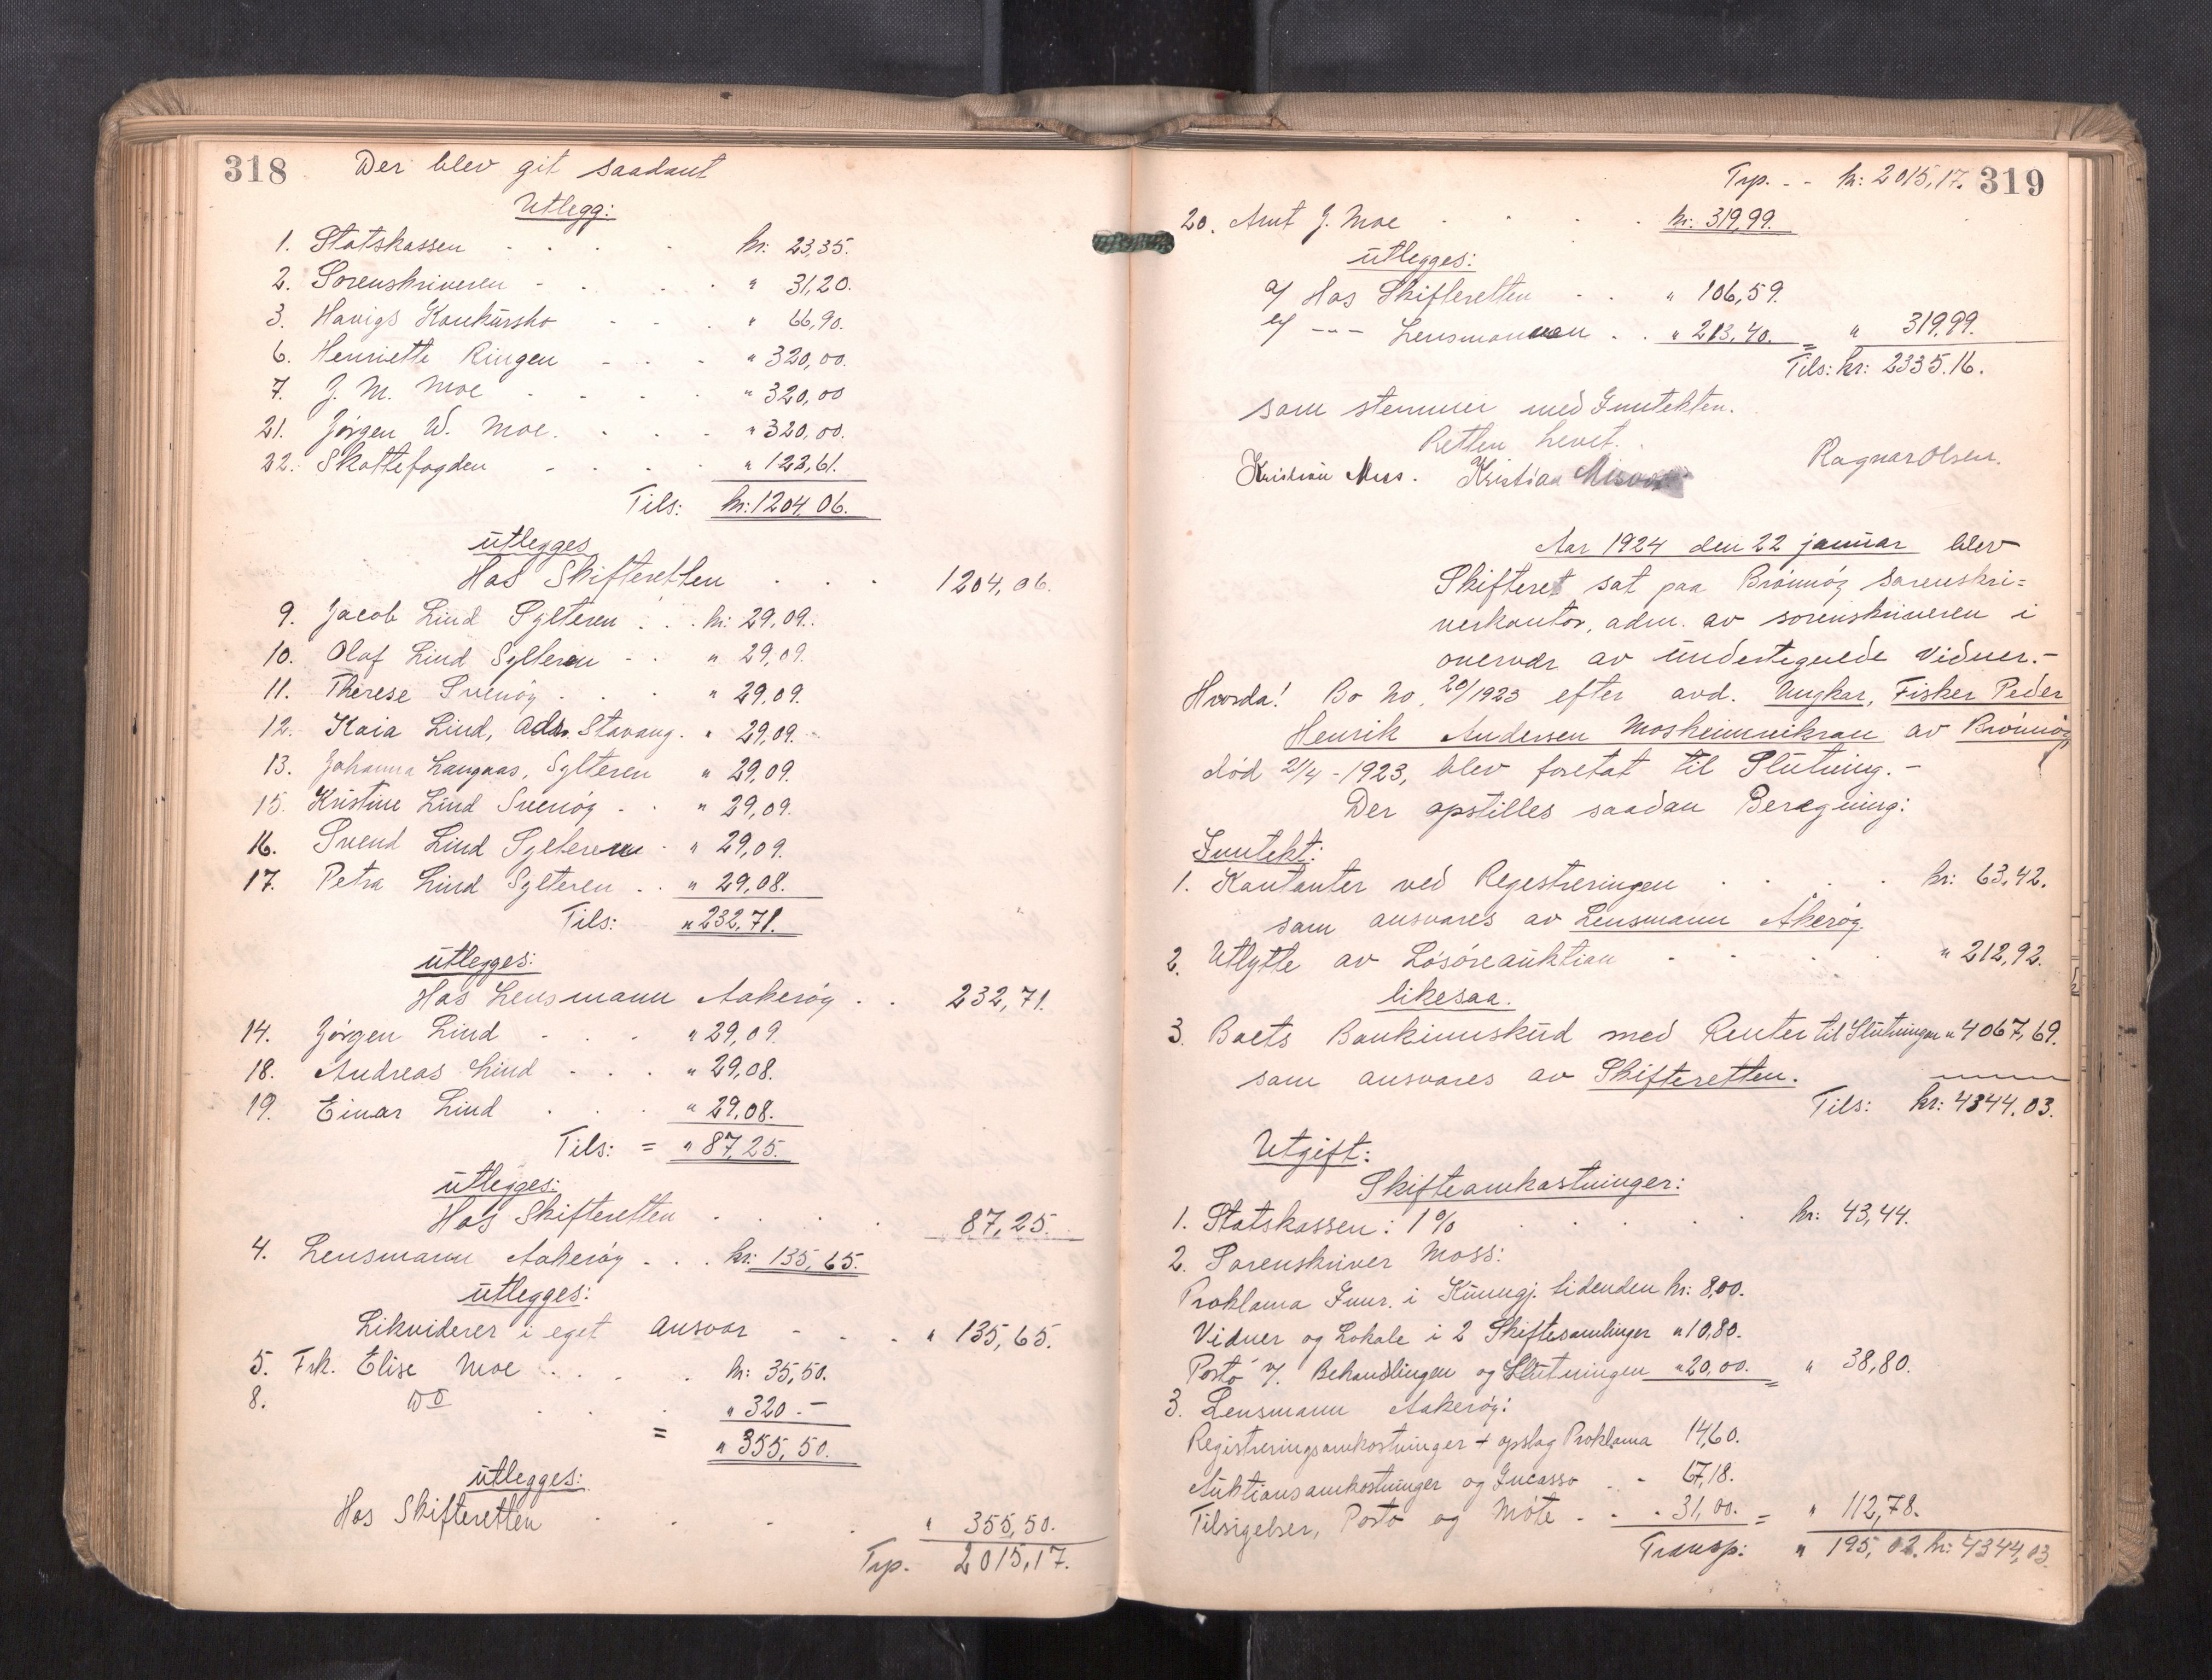 318 Der blev git saadant
Utlegg:
1. Statskassen kr: 23,35.
2. Sorenskriveren " 31,20.
3. Havigs Konkursbo " 66,90.
6. Henriette Ringen " 320,00.
7. J. M. Moe " 320,00
21. Jørgen W. Moe. " 320,00.
22. Skattefogden " 122,61.
Tils: kr: 1204,06.
utlegges
Hos Skifteretten 1204,06.
9. Jacob Lind Sylteren kr: 29,09.
10. Olaf Lind Sylteren " 29,09.
11. Therese Svenøy " 29,09.
12. Kaia Lind, Adr. Stavang. " 29,09.
13. Johanna Langaas, Sylteren " 29,09.
15. Kristine Lind Svenøy " 29,09.
16. Svend Lind Sylteren " 29,09.
17. Petra Lind Sylteren " 29,08.
Tils: " 232,71.
utlegges:
Hos Lensmann Aakerøy 232,71.
14. Jørgen Lind " 29,09.
18. Andreas Lind " 29,08.
19. Einar Lind " 29,08.
Tils: = " 87,25.
utlegges:
Hos Skifteretten 87,25.
4. Lensmann Aakerøy kr: 135,65.
utlegges:
Likviderer i eget ansvar " 135,65.
5. Frk. Elise Moe kr: 35,50.
8. Do " 320.-
= " 355,50.
utlegges:
Hos Skifteretten " 355,50.
Trp. 2015,17.
Trp. - - kr: 2015,17. 319
20. Arnt J. Moe kr: 319,99.
utlegges:
a/ Hos Skifteretten " 106,59.
b/ --- Lensmannen " 213,40. = " 319,99.
Tils: kr: 2335.16.
som stemmer med Inntekten.
Retten hevet.
Kristian Kristian Ragnar Olsen.
Aar 1924 den 22 januar blev
Skifteret sat paa Brønnøy sorenskri=
verkontor, adm. av sorenskriveren i
overvær av undertegnede Vidner.-
Hvorda! Bo No. 20/1923 efter avd. Ungkar, Fisker Peder
Henrik Andersen Mosheimvikran av Brønnøy
død 2/4-1923, blev foretat til Slutning.-
Der opstilles saadan Beregning:
Inntekt:
1. Kontanter ved Registreringen kr: 63,42.
som ansvares av Lensmann Åkerøy.
2. Utbytte av Løsøreauktion " 212,92.
likesaa.
3. Boets Bankinnskud med Renter til Slutningen " 4067,69.
som ansvares av Skifteretten.
Tils: kr: 4344,03.
Utgift:
Skifteomkostninger:
1. Statskassen: 1% kr: 43,44.
2. Sorenskriver Moss:
Proklama Innr. i Kunngj. tidenden kr: 8,00.
Vidner og Lokale i 2 Skiftesamlinger " 10,80.
Porto v/ Behandlingen og Slutningen " 20,00. = " 38,80.
3. Lensmann Aakerøy:
Registreringsomkostninger + opslag Proklama 14,60.
Auktionsomkostninger og Incasso 67,18.
Tilsigelser, Porto og Møte 31,00. = " 112,78.
Transp: " 195,02. kr: 4344,03.